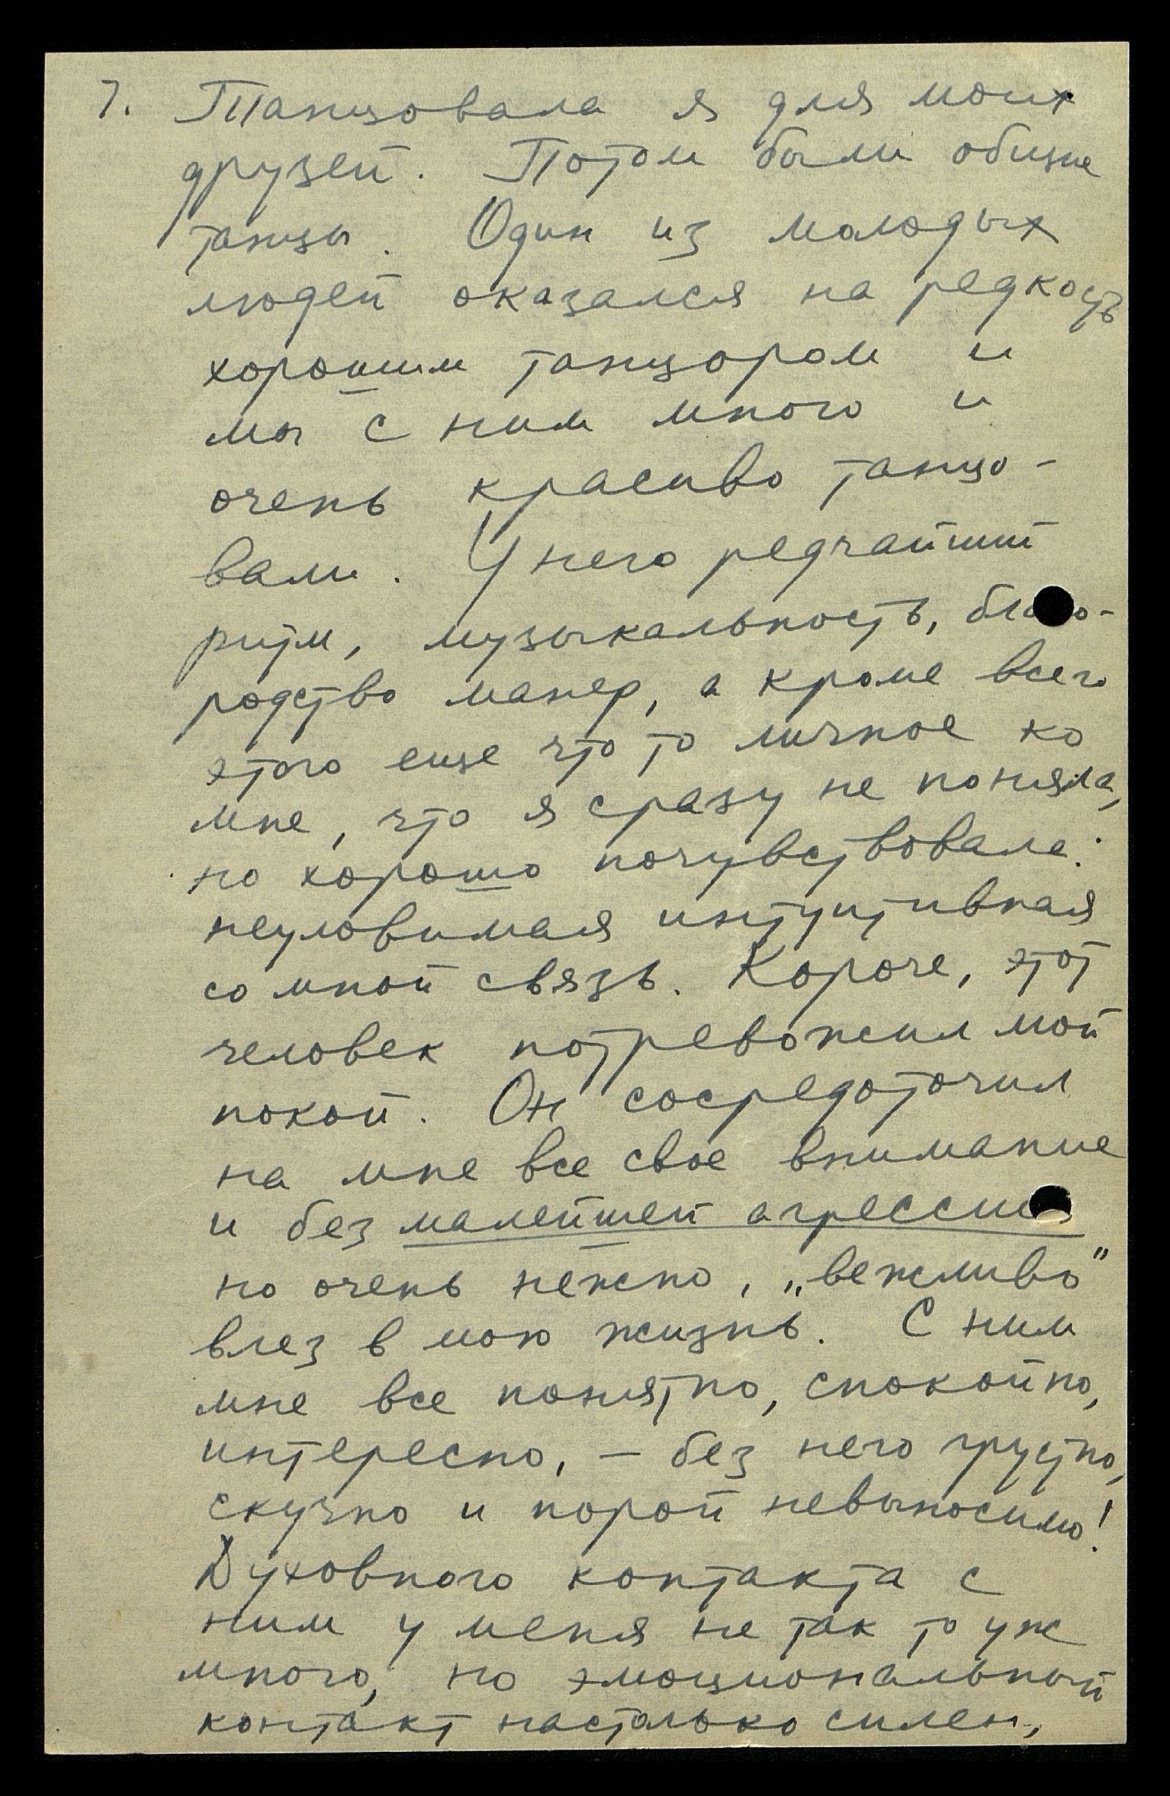 7. Танцовала я для моих
друзей. Потом были общие
танцы. Один из молодых
людей оказался на редкость
хорошим танцором и
мы с ним много и
очень красиво танцо-
вали. У него редчайший
ритм, музыкальность, благо-
родство манер, а кроме всего
этого еще что то личное ко
мне, что я сразу не поняла,
но хорошо почувствовала:
неуловимая интуитивная
со мной связь. Короче, этот
человек потревожил мой
покой. Он сосредоточил
на мне все свое внимание
и без малейшей агрессии
но очень нежно, „вежливо"
влез в мою жизнь. С ним
мне все понятно, спокойно,
интересно, – без него грустно,
скучно и порой невыносимо!
Духовного контакта с
ним у меня не так то уж
много, но эмоциональный
контакт настолько силен,